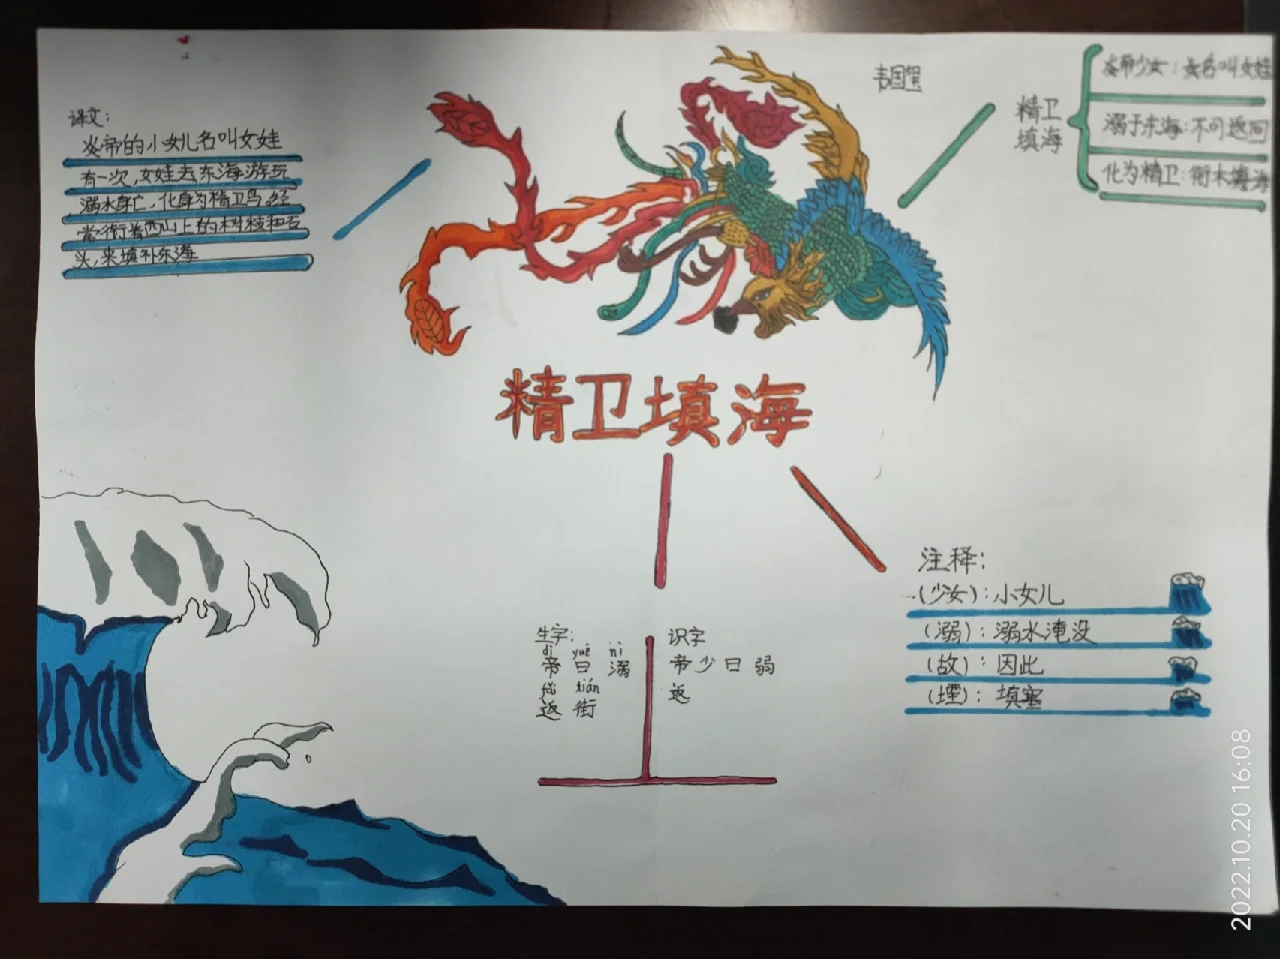 译文:
炎帝的小女儿名叫女娃
有一次,女娃去东海游玩
溺水身亡,化身为精卫鸟,经
常衔着西山上的树枝和石
头,来填补东海
精卫
填海
炎帝少女:女名叫女娃
溺于东海:不可返回
化为精卫:衔木填海
精卫填海
生字:
dì yuē nì
帝 曰 溺
xián
返 衔
识字
帝 少 曰 弱
返
注释:
(少女):小女儿
(溺):溺水淹没
(故):因此
(堙):填塞
2022.10.20 16:08